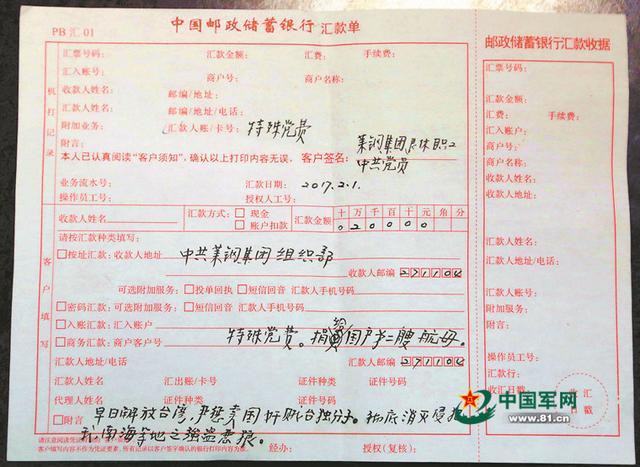 PB 汇 01
中国邮政储蓄银行 汇款单
汇票号码: 汇款金额: 汇费: 手续费:
汇入账号: 商户号: 商户名称:
收款人姓名: 邮编/地址:
汇款人姓名: 邮编/地址/电话:
附加业务: 汇款人账/卡号: 特殊党费
附言: 莱钢集团退休职工
本人已认真阅读“客户须知”,确认以上打印内容无误, 客户签名: 中共党员
业务流水号: 汇款日期: 2017.2.1.
操作员工号: 授权人工号:
机打记录
收款人姓名 汇款方式: 现金 账户扣款 汇款金额 十万千百十元角分
020000
请按汇款种类填写:
按址汇款: 收款人地址 中共莱钢集团组织部
收款人邮编 271104
可选附加服务: 投单回执 短信回音 汇款人手机号码
密码汇款: 可选附加服务: 短信回音 汇款人手机号码
入账汇款: 汇入账户
商务汇款: 商户客户号 特殊党费。捐给国产第二艘航母。
汇款人地址/电话 汇款人邮编 271104
汇款人姓名 汇出账/卡号 证件种类 证件号码
代理人姓名 证件种类 证件号码
附言 早日解放台湾,严惩卖国奸贼台独分子。彻底消灭侵
南海等地之强盗恶狼。
客户填写
请注意阅读凭证
客户填写内容不作为凭证要素,所有记录以客户签字确认的银行打印内容为准
经办: 授权(复核):
邮政储蓄银行汇款收据
汇票号码:
汇款金额:
汇费: 手续费:
汇入账户:
商户号:
商户名称:
收款人姓名:
收款人地址:
汇款人姓名:
汇款人地址/电话:
汇款人账号:
附加服务:
附言:
操作员工号:
汇款行:
收汇日期:
收汇
日戳
中国军网
www.81.cn